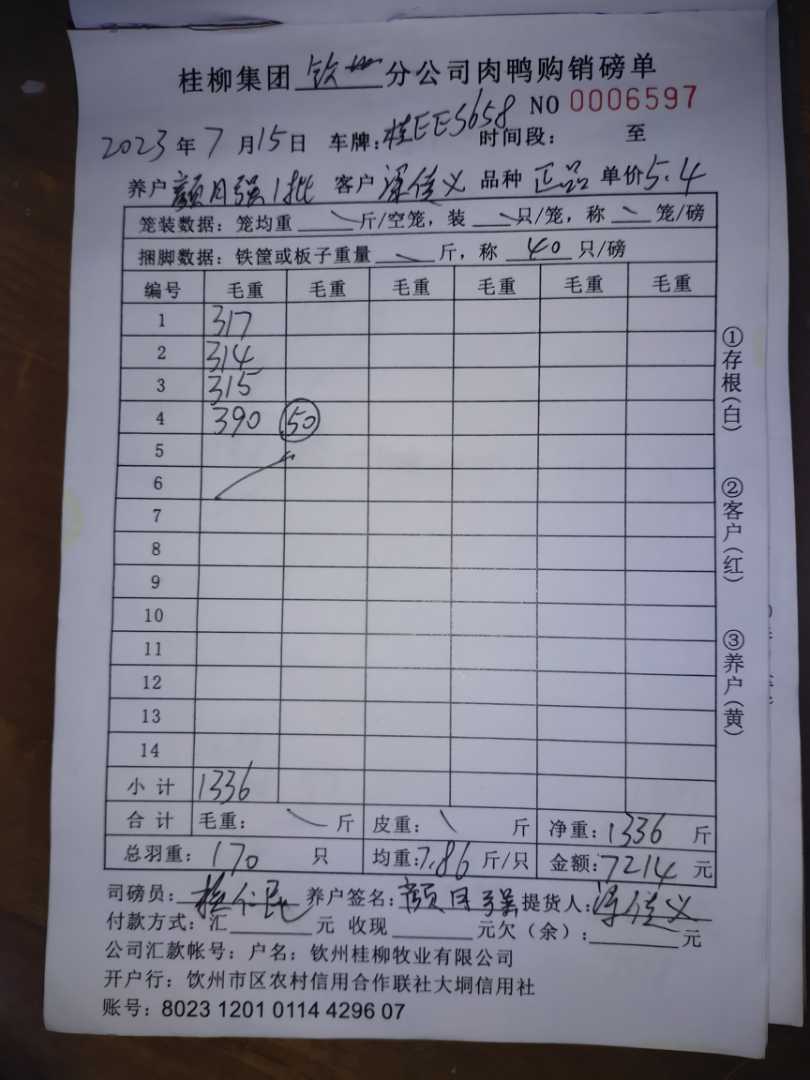 桂柳集团 钦州 分公司肉鸭购销磅单
NO 0006597
2023年7月15日 车牌:桂EES658 时间段: 至
养户 颜月强1批 客户 梁佳义 品种 正品 单价5.4
笼装数据: 笼均重 \ 斤/空笼, 装 \ 只/笼, 称 \ 笼/磅
捆脚数据: 铁筐或板子重量 \ 斤, 称 40 只/磅
编号 毛重 毛重 毛重 毛重 毛重 毛重
1 317
2 314
3 315
4 390 50
5
6
7
8
9
10
11
12
13
14
小计 1336
合计 毛重: \ 斤 皮重: \ 斤 净重: 1336 斤
总羽重: 170 只 均重:7.86 斤/只 金额:7214 元
司磅员: 养户签名: 颜月强 提货人: 梁佳义
付款方式: 汇 元 收现 元欠(余): 元
公司汇款帐号: 户名: 钦州桂柳牧业有限公司
开户行: 饮州市区农村信用合作联社大垌信用社
账号: 8023 1201 0114 4296 07
①存根(白)
②客户(红)
③养户(黄)